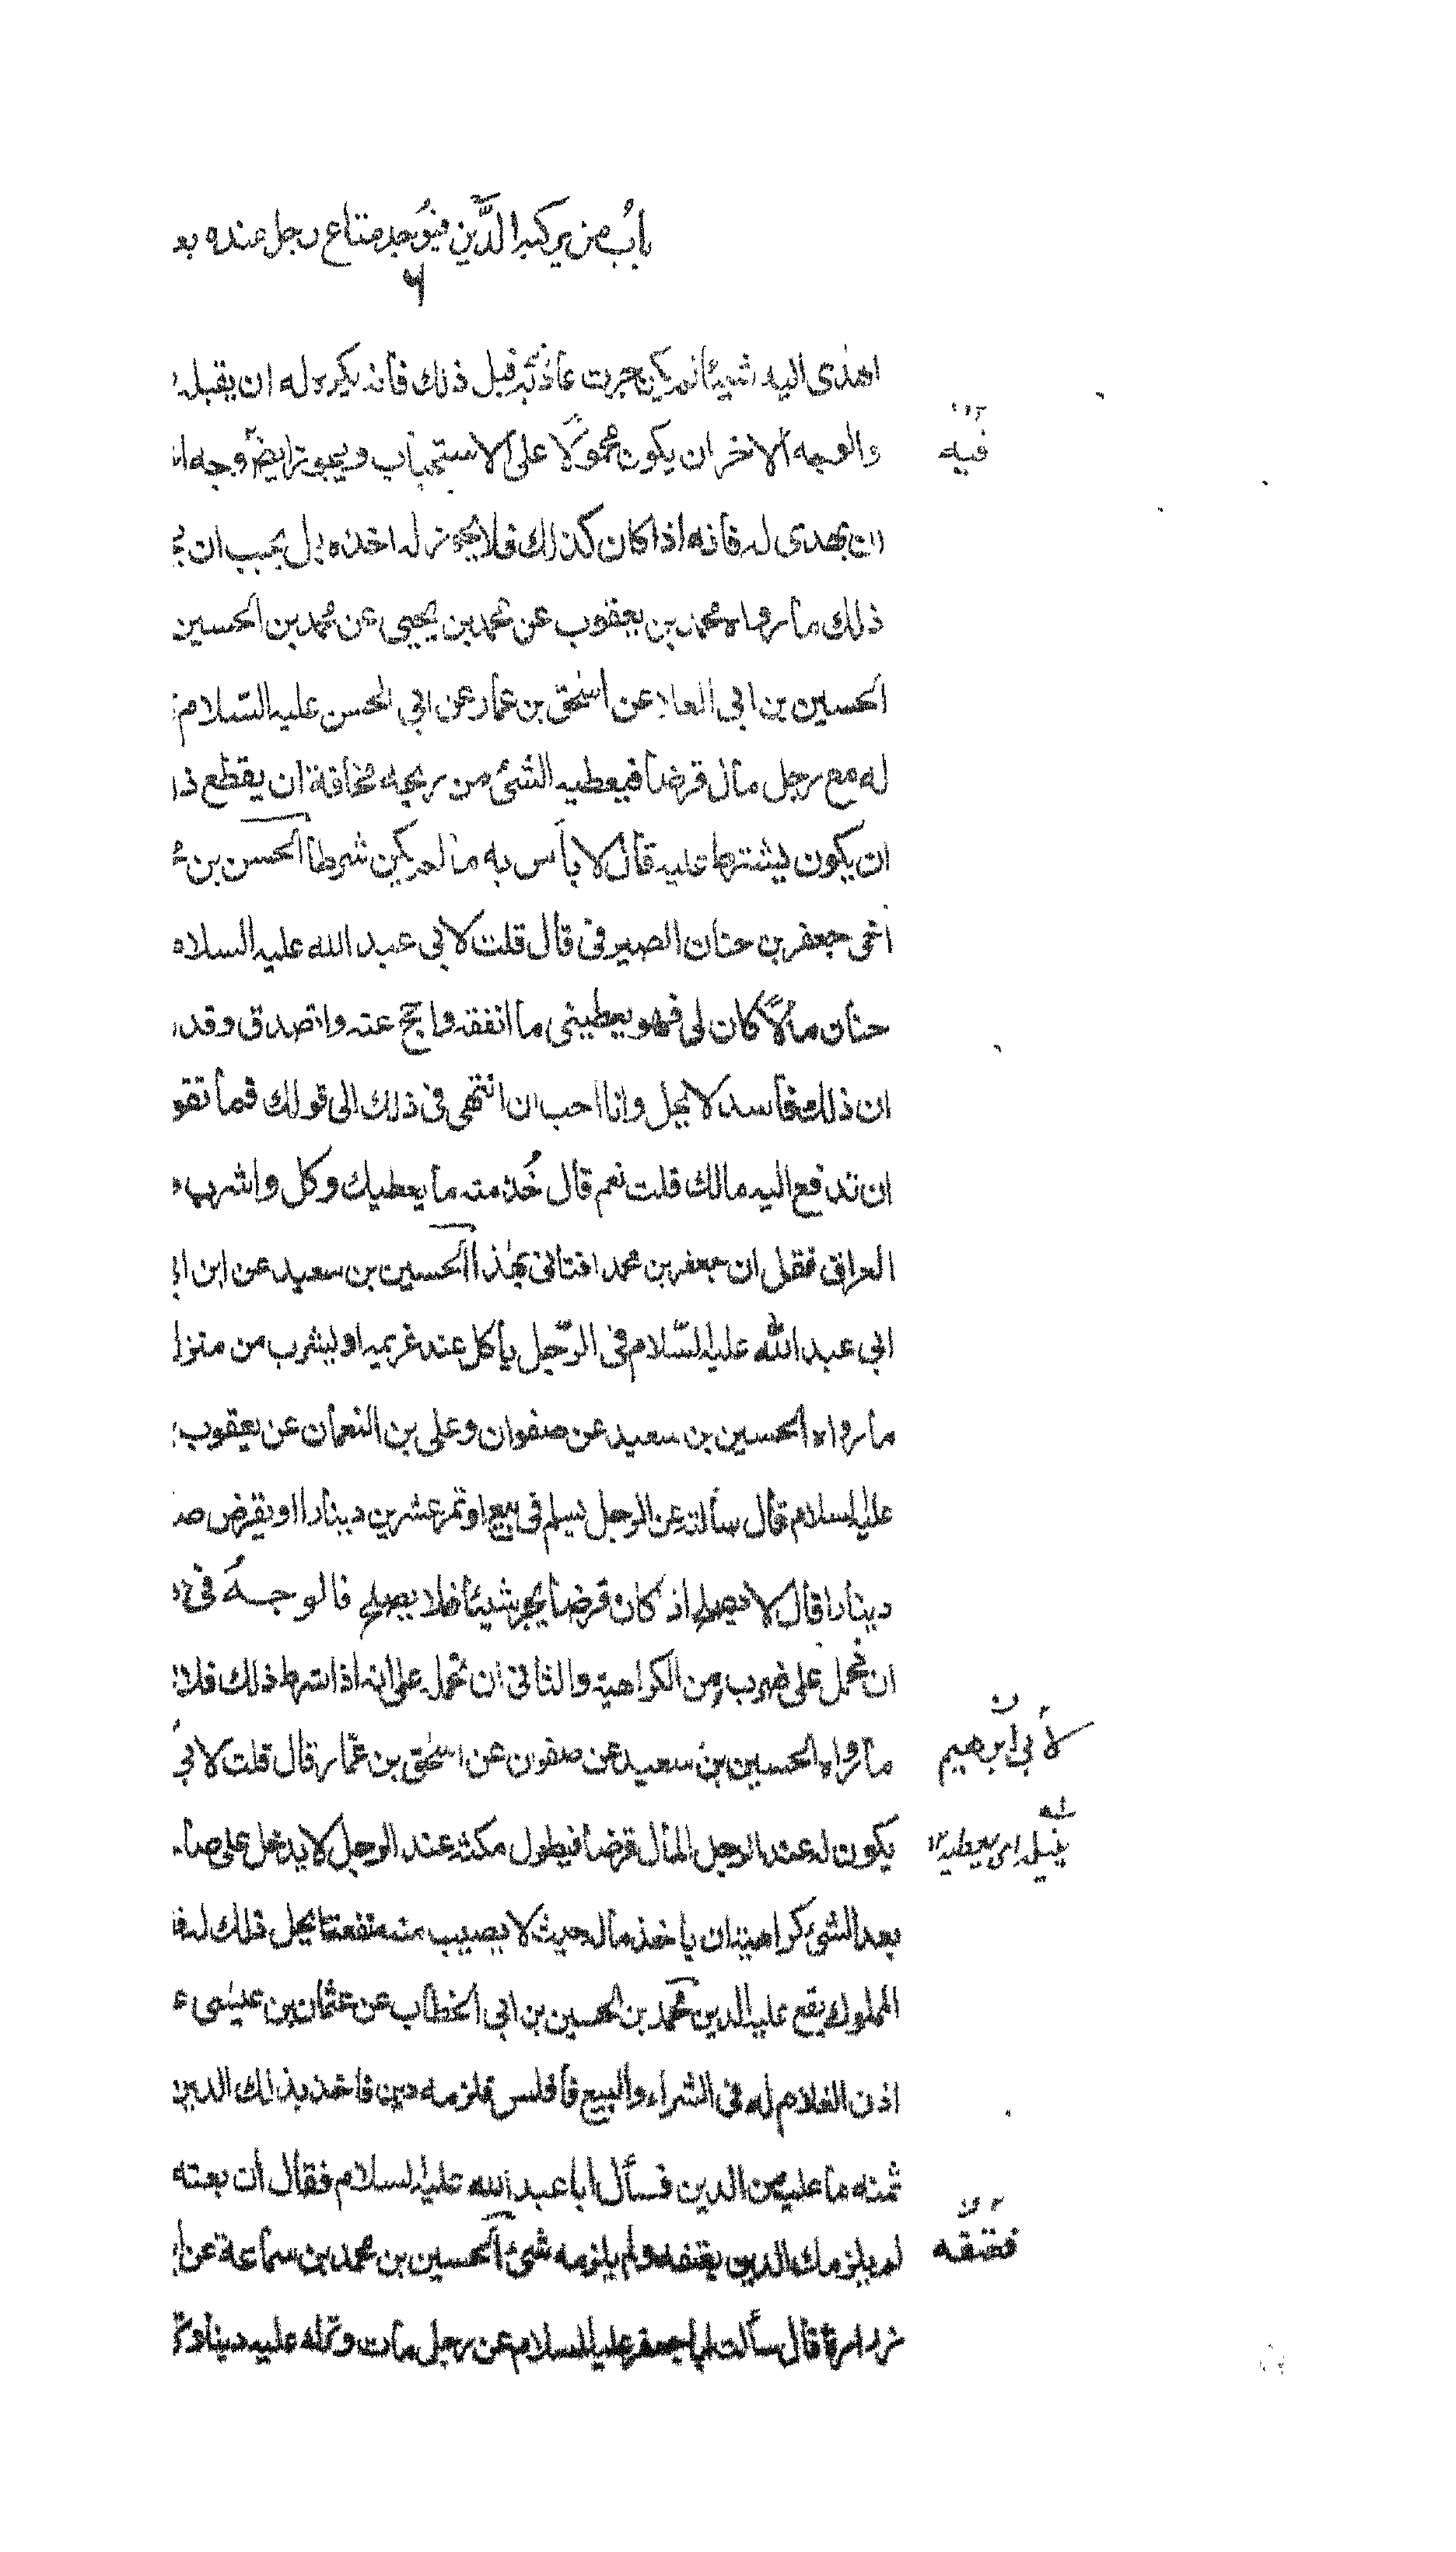 باب من يركبه الدَّين فيوجد متاع رجل عنده بع
٦
اهدى اليه شيئا لم يكن جرت عادته قبل ذلك فانه يكره له ان يقبله
والوجه الاخر ان يكون محمولا على الاستحباب ويجوز ايضً وجه ا
فيه
ان يهدى له فانه اذا كان كذلك فلا يجوز له اخذه بل يجب ان
ذلك ما رواه محمد بن يعقوب عن محمد بن يحيى عن محمد بن الحسين
الحسين بن ابي العلا عن اسحق بن عمار عن ابي الحسن عليه السلام
له مع رجل مال قرضا فيعطيه الشئ من ربحه مخافة ان يقطع ذ
ان يكون يشترط عليه قال لا بأس به ما لم يكن شرطا الحسن بن
اخى جعفر بن حنان الصيرفى قال قلت لابي عبد الله عليه السلام
حنان مالًا كان لى فهو يعطينى ما انفقه واحج عنه واتصدق وقد
ان ذلك فاسد لا يحل وانا احب ان انتهى فى ذلك الى قولك فما تقو
ان تدفع اليه مالك قلت نعم قال خُذ منه ما يعطيك وكل واشرب
العراق فقل ان جعفر بن محمد افتانى بهذا الحسين بن سعيد عن ابن ا
ابي عبد الله عليه السّلام فى الرّجل يأكل عند غريمه او يشرب من منزل
ما رواه الحسين بن سعيد عن صفوان وعلى بن النعمان عن يعقوب
عليه السلام قال سألته عن الرجل يسلم فى بيع او تمر عشرين دينارا او يقرض ص
دينارا قال لا يصلح اذ كان قرضا يجر شيئا فلا يصلح فالوجهُ فى
ان نحمل على ضرب من الكراهية والثانى ان نحمله على انه اذا اشترط ذلك فلا
ما رواه الحسين بن سعيد عن صفون عن اسحق بن عمّار قال قلت لابي
لأبي ابرهيم
يكون له عند الرجل المال قرضا فيطول مكثه عند الرجل لا يدخل على صا
بعد الشئ كراهية ان ياخذ ماله حيث لا يصيب منه منفعة ايحل ذلك له
المملوك يقع عليه الدين محمد بن الحسين بن ابي الخطاب عن عثمان بن عيسى
اذن الغلام له فى الشراء والبيع فافلس فلزمه دين فاخذ بذلك الدين
ثمنه ما عليه من الدين فسأل ابا عبد الله عليه السلام فقال ان بعته
لم يلزمك الدين يعتقه ولم يلزمه شئ الحسين بن محمد بن سماعة عن
زرارة قال سألت ابا جعفر عليه السلام عن رجل مات وترك عليه دينا و